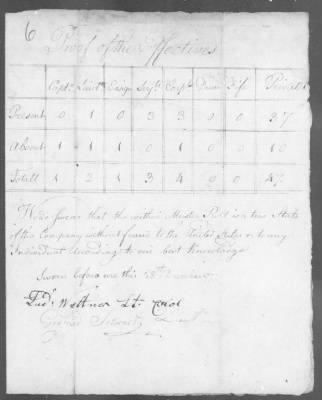 6
Proof of the Effectives
Capt. Lieut. Ensign Serjt. Corpl. Drum Fife Privates
Present 0 1 0 3 3 0 0 37
Absent 1 1 1 0 1 0 0 10
Totall 1 2 1 3 4 0 0 47
We do swear that the within Muster Roll is a true State
of this Company without fraud to the United States or to any
Individual According to our best Knowledge
Sworn before me this
Lt. Colol